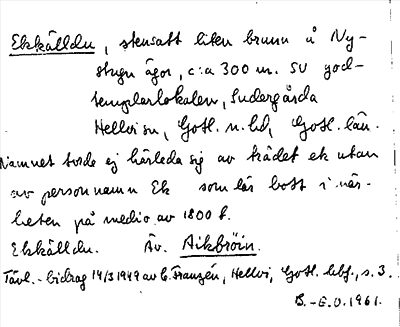 Ekkälldu, stensatt liten brunn å Ny-
stugu ägor, c:a 300 m. SV god-
templarlokalen, Sudergårda
Hellvi sn, Gotl. n. hd, Gotl. län.
Namnet torde ej härleda sig av trädet ek utan
av personnamn Ek som lär bott i när-
heten på medio av 1800 t.
Ekkälldu. Äv. Aikbröin.
Tävl.-bidrag 14/3 1949 av C. Franzén, Hellvi, Gotl. hbf., s. 3.
B.-E.O. 1961.